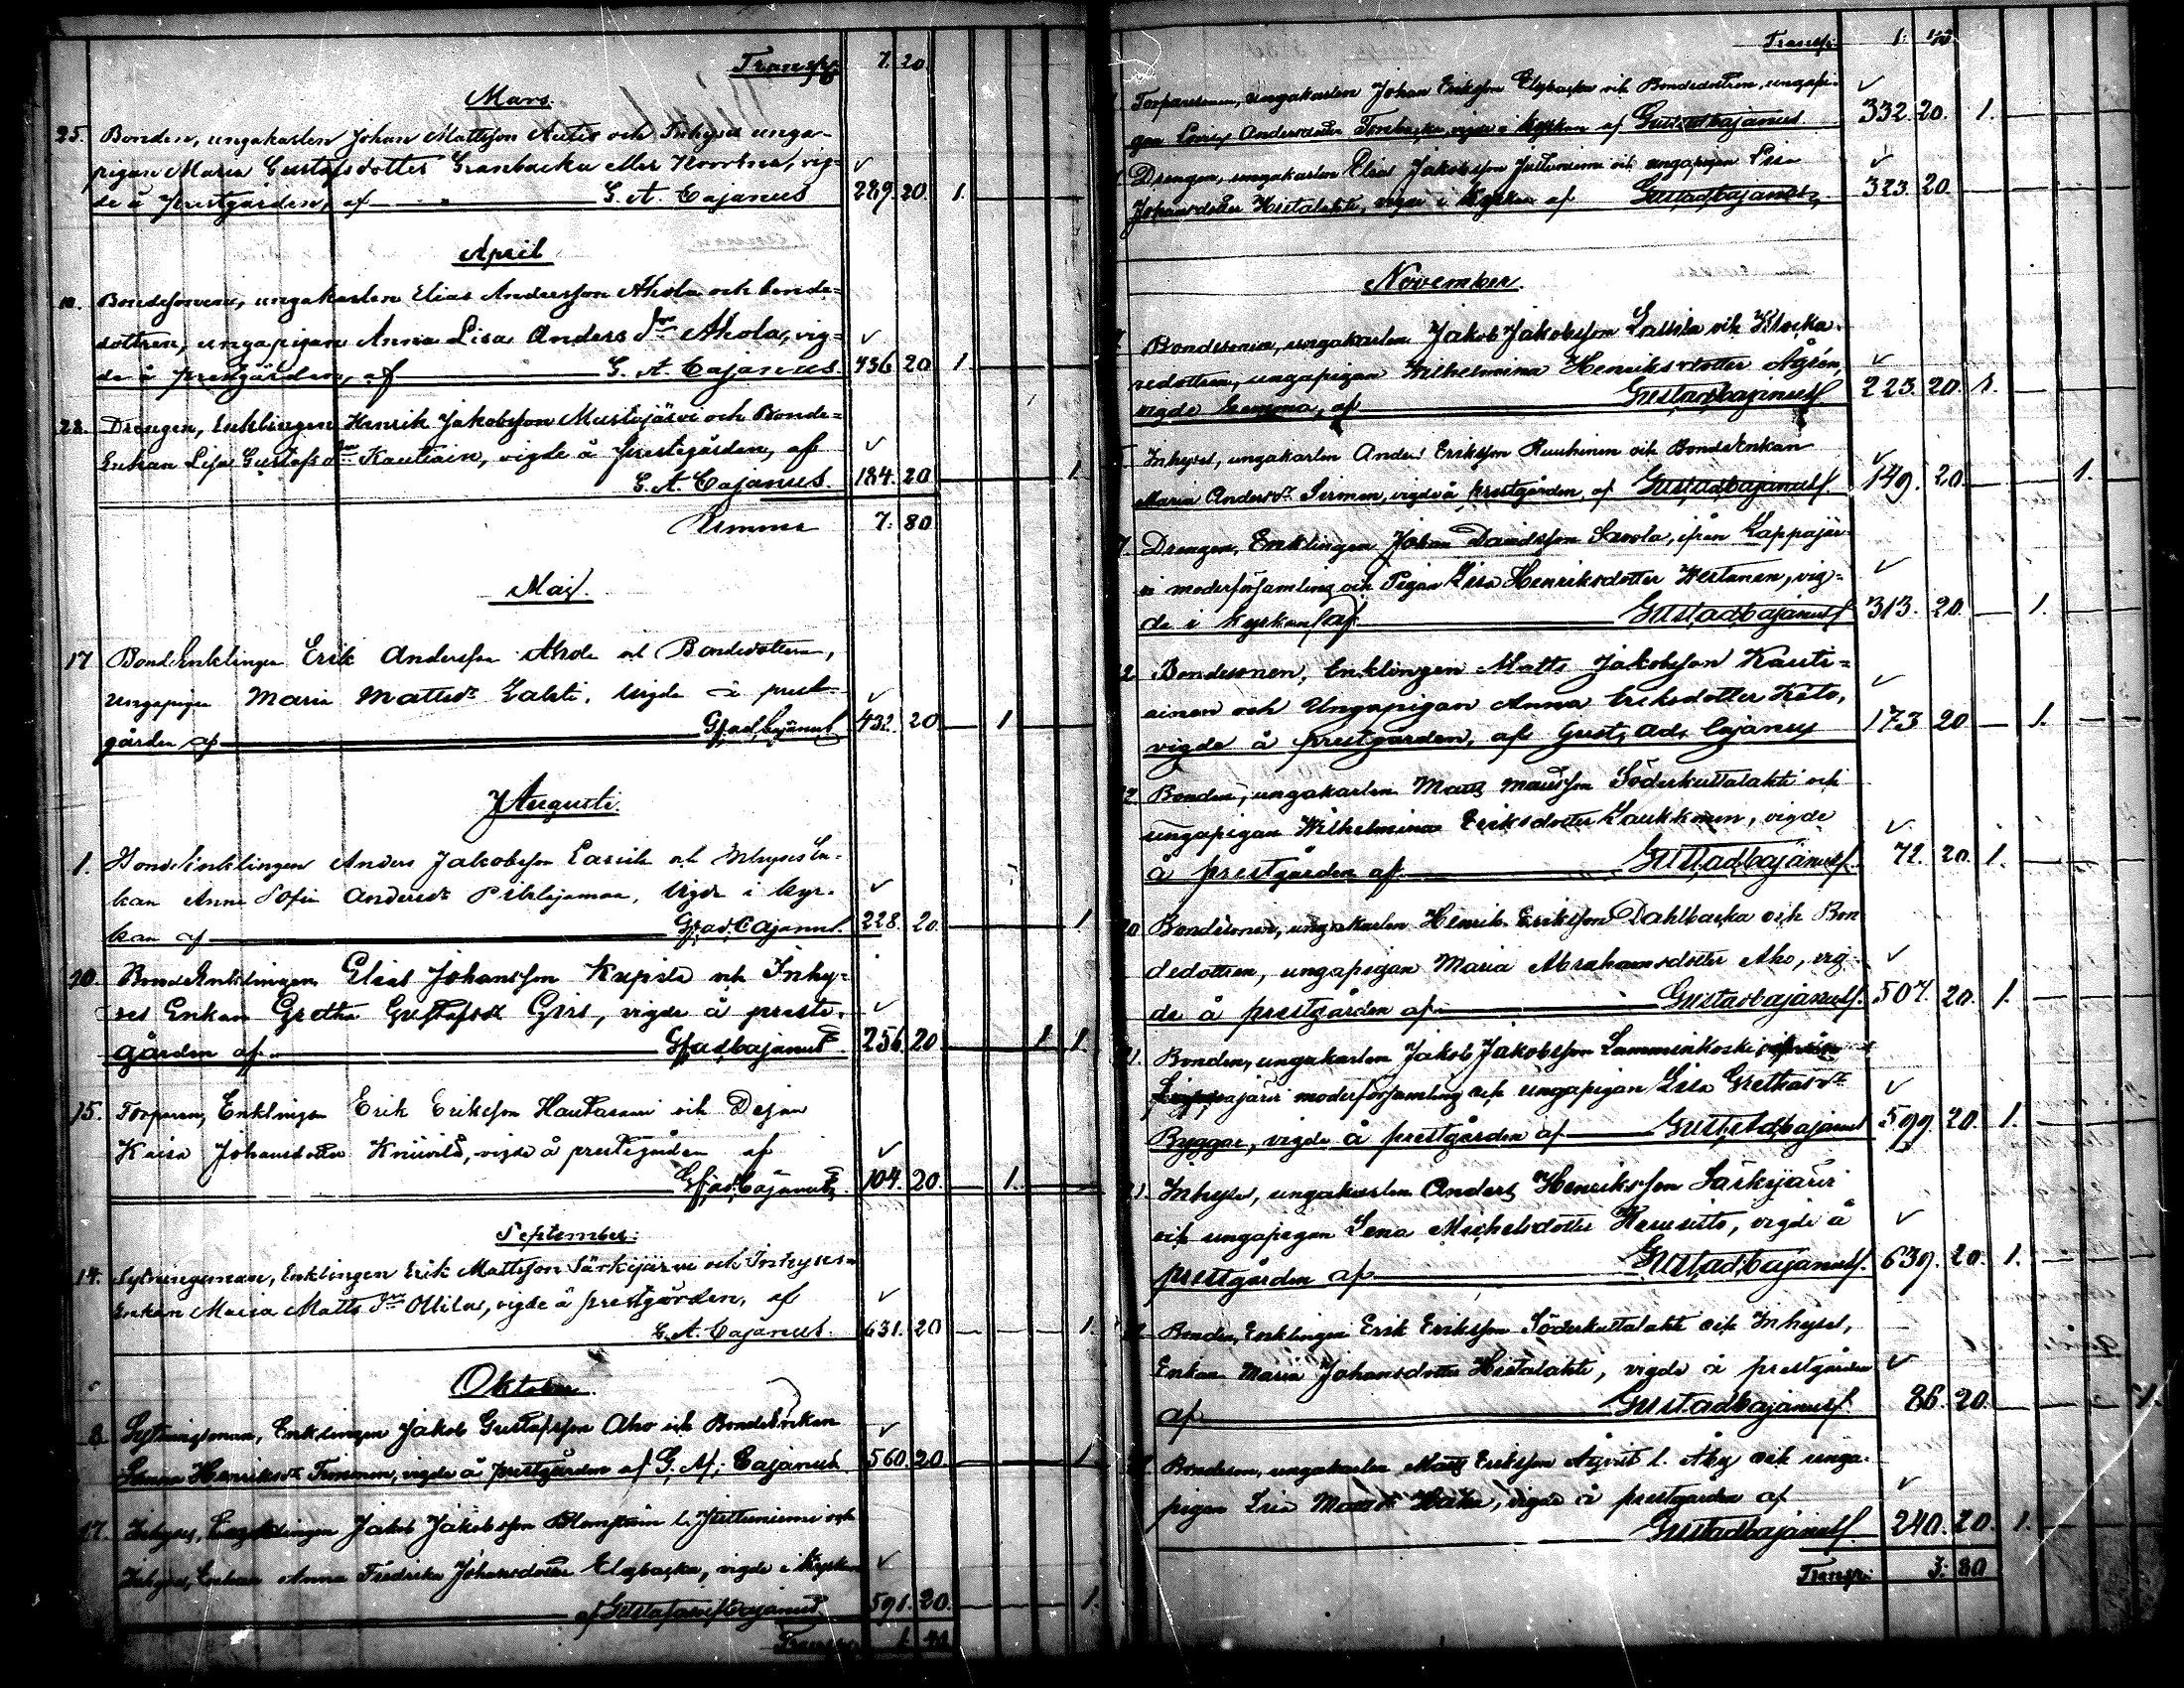 Transp. 7. 20.
Mars.
25. Bonden, ungakarlen Johan Mattsson Autio och Inhyses unga-
pigan Maria Gustafsdotter Granbacka eller, vig-
de å prestgården, af G. A. Cajanus 289. 20. 1.
April
10. Bondesonen, ungakarlen Elias Andersson Ahola och bonde-
dottren, ungapigan Anna Lisa Anders dr Ahola, vig-
de å prestgården, af G. A. Cajanus. 436 20 1.
28. Drengen, Enklingen Henrik Jakobsson Mustajärvi och Bonde-
Enkan Lisa Gustafs dr Kautiain, vigde å Prestegården, af
G. A. Cajanus. 184. 20 1.
Summa 7. 80
Maj.
17 BondeEnklingen Erik Andersson Ahola och Bondedottern,
Ungapigan Maria Mattsdr Lahti, vigde å prest-
gården af G. ad. Cajanus 432. 20 1
Augusti.
1. BondeEnklingen Anders Jakobsson Lassila och InhysesEn-
kan Anna Sofia Andersdr, vigde i kyr-
kan af G. ad. Cajanus. 228. 20. 1
20. BondeEnklingen Elias Johansson Kupila och Inhy-
ses Enkan Gretha Gustafsdr Girs, vigde å preste-
gården af G. ad. Cajanus 256. 20 1 1.
25. Torparen, Enklingen Erik Eriksson Hautasaari och Dejan
Kaisa Johansdotter Kniivilä, vigde å prestegården af
G. ad. Cajanus 104. 20. 1.
September.
14. Sytningsman, Enklingen Erik Mattsson Särkijärvi och Inhyses
Enkan Maria Matts dr Ollila, vigde å prestgården, af
G. A. Cajanus. 631. 20 1.
Oktober.
8. Sytningsman, Enklingen Jakob Gustafsson Aho och BondeEnkan
Sanna Henriksdr Timonen, vigde å prestgården af G. A. Cajanus 560. 20 1
17. Inhyses, Enklingen Jakob Jakobsson Blomström l. Jutluniemi och
Inhyses, Enkan Anna Fredrika Johansdotter Elgbacka, vigde i Kyrkan
af Gustaf Adolf Cajanus. 591. 20. 1.
Transp. 1. 40
Transp. 1. 40.
Torparesonen, ungakarlen Johan Eriksson Elgbacka och Bondedottren, ungapi-
gan Lovisa Andersdotter, vigde i kyrkan af Gust. ad. Cajanus 332. 20. 1.
Drengen, ungakarlen Elias Jakobsson Jutluniemi och ungapigan Lisa
Johansdotter Hietalahti, vigde i Kyrkan af Gust. ad. Cajanus 323. 20.
November
Bondesonen, ungakarlen Jakob Jakobsson Lassila och Klocka-
redottren, ungapigan Wilhelmina Henriksdotter Ågren,
vigde hemma, af Gust. ad. Cajanus 223. 20. 1.
Inhyses, ungakarlen Anders Eriksson Ruuhinen och BondeEnkan
Maria Andersdr Sirnen, vigde å prestgården, af Gust. ad. Cajanus 149. 20. 1.
7. Drengen, Enklingen Johan Davidsson Savola, ifrån Lappajär-
vi moderförsamling och Pigan Lisa Henriksdotter Westanen, vig-
de i kyrkan, af Gust. ad. Cajanus 313. 20. 1.
12 Bondesonen, Enklingen Matts Jakobsson Kauti-
ainen och Ungapigan Anna Eriksdotter Keto,
vigde å prestgården, af Gust. ad. Cajanus 173 20 1.
12 Bonden, ungakarlen Matts Mattsson Söderkultalahti och
ungapigan Wilhelmina Eriksdotter Laukkonen, vigde
å prestgården af Gust. ad. Cajanus. 72. 20. 1.
20 Bondesonen, ungakarlen Henrik Eriksson Dahlbacka och Bon-
dedottren, ungapigan Maria Abrahamsdotter Aho, vig-
de å prestgården af Gust. ad. Cajanus. 507. 20. 1.
21. Bonden, ungakarlen Jakob Jakobsson Lamminkoski ifrån
Lappajärvi moderförsamling och ungapigan Lisa Grethasdr
Byggar, vigde å prestgården af Gust. Ad. Cajanus 599. 20. 1.
21. Inhyses, ungakarlen Anders Henriksson Särkijärvi
och ungapigan Lena Michelsdotter, vigde å
prestgården af Gust. ad. Cajanus. 639. 20. 1.
Bonden, Enklingen Erik Eriksson Söderkultalahti och Inhyses,
Enkan Maria Johansdotter Hietalahti, vigde å prestgården
af Gust. ad. Cajanus 86. 20. 1.
Bondeson, ungakarlen Matts Eriksson Åqvist l. Åby och unga-
pigan Lisa Mattsdr, vigde å prestgården af
Gust. ad. Cajanus. 240. 20. 1.
Transp. 3. 80